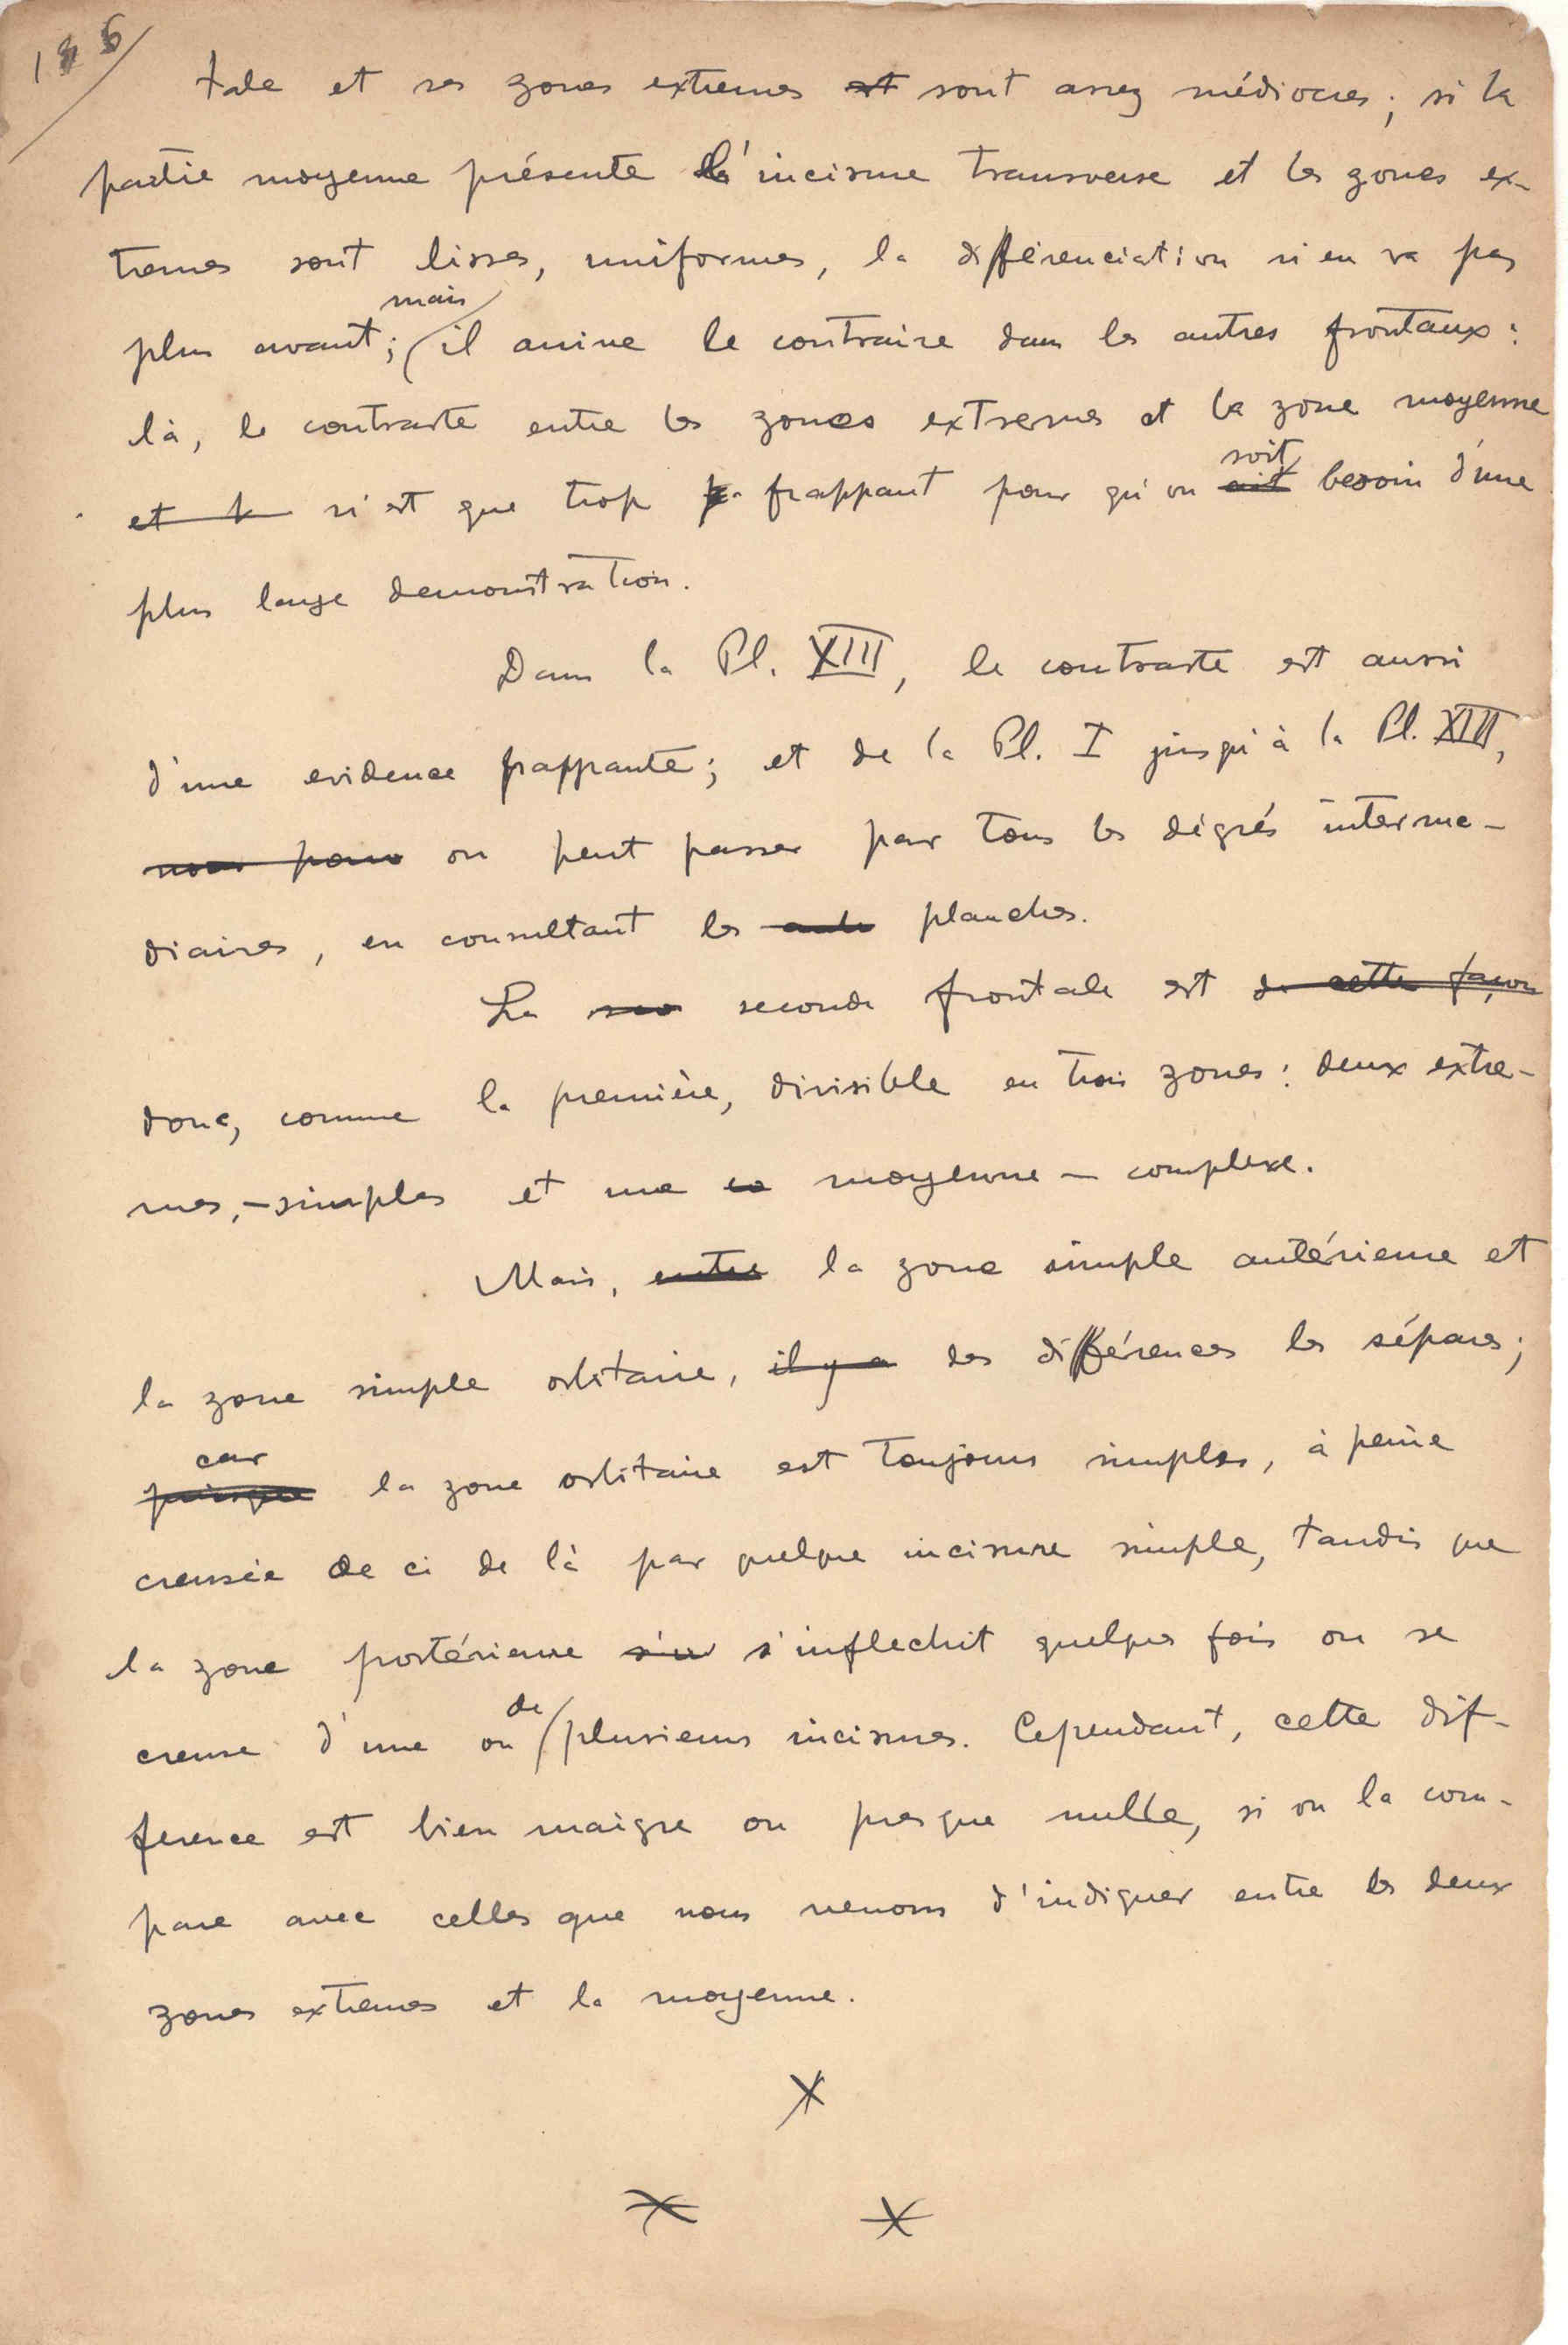 186
tale et ses zones extremes est sont assez médiocres; si la
partie moyenne présente l'incisure transverse et les zones ex-
tremes sont lisses, uniformes, la différenciation n'en va pas
mais
plus avant; il arrive le contraire dans les autres frontaux:
là, le contraste entre les zones extremes et la zone moyenne
soit
et la n'est que trop frappant pour qu'on ait besoin d'une
plus large demonstration.
Dans la Pl. XIII, le contraste est aussi
d'une evidence frappante; et de la Pl. I jusqu'à la Pl. XIII,
nous pouv on peut passer par tous les dégrés interme-
diaires, en consultant les planches.
La seconde frontale est de cette façon
donc, comme la première, divisible en trois zones: deux extre-
mes, - simples et une moyenne - complexe.
Mais, entre la zone simple antérieure et
la zone simple orbitaire, il y a des différences les sépares;
car
puisque la zone orbitaire est toujours simples, à peine
creusée de ci de là par quelque incisure simple, tandis que
la zone postérieure s'in s'inflechit quelques fois ou se
de
creuse d'une ou plusieurs incisures. Cependant, cette dif-
ference est bien maigre ou presque nulle, si on la com-
pare avec celles que nous venons d'indiquer entre les deux
zones extremes et la moyenne.